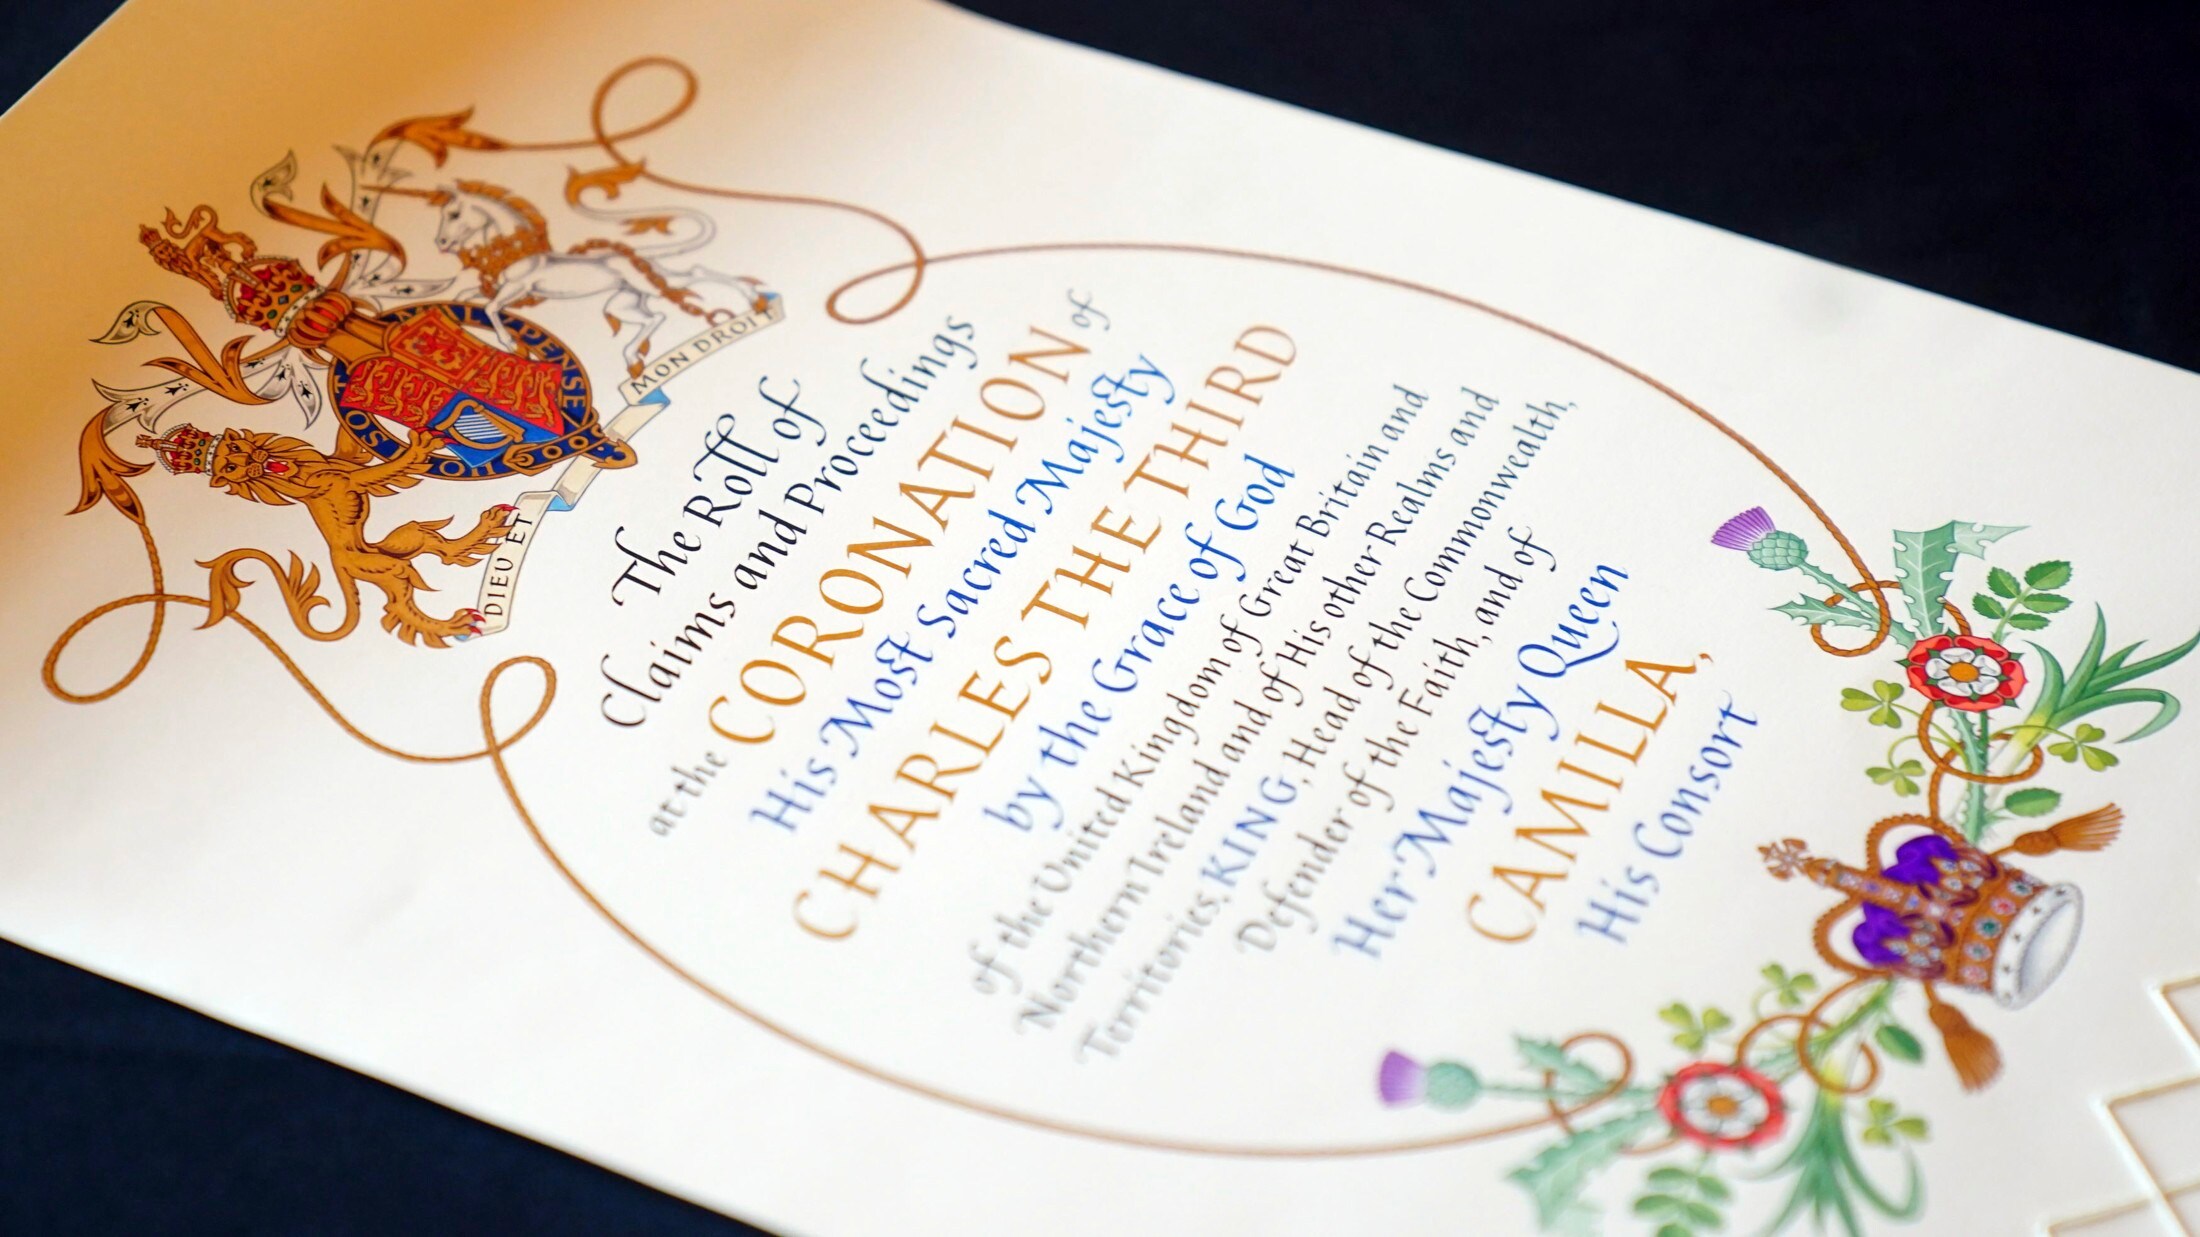 SOIT
HONI
MAL Y PENSE
DIEU ET
MON DROIT
The Roll of
Claims and Proceedings
at the CORONATION of
His Most Sacred Majesty
CHARLES THE THIRD
by the Grace of God
of the United Kingdom of Great Britain and
Northern Ireland and of His other Realms and
Territories, KING, Head of the Commonwealth,
Defender of the Faith, and of
Her Majesty Queen
CAMILLA,
His Consort